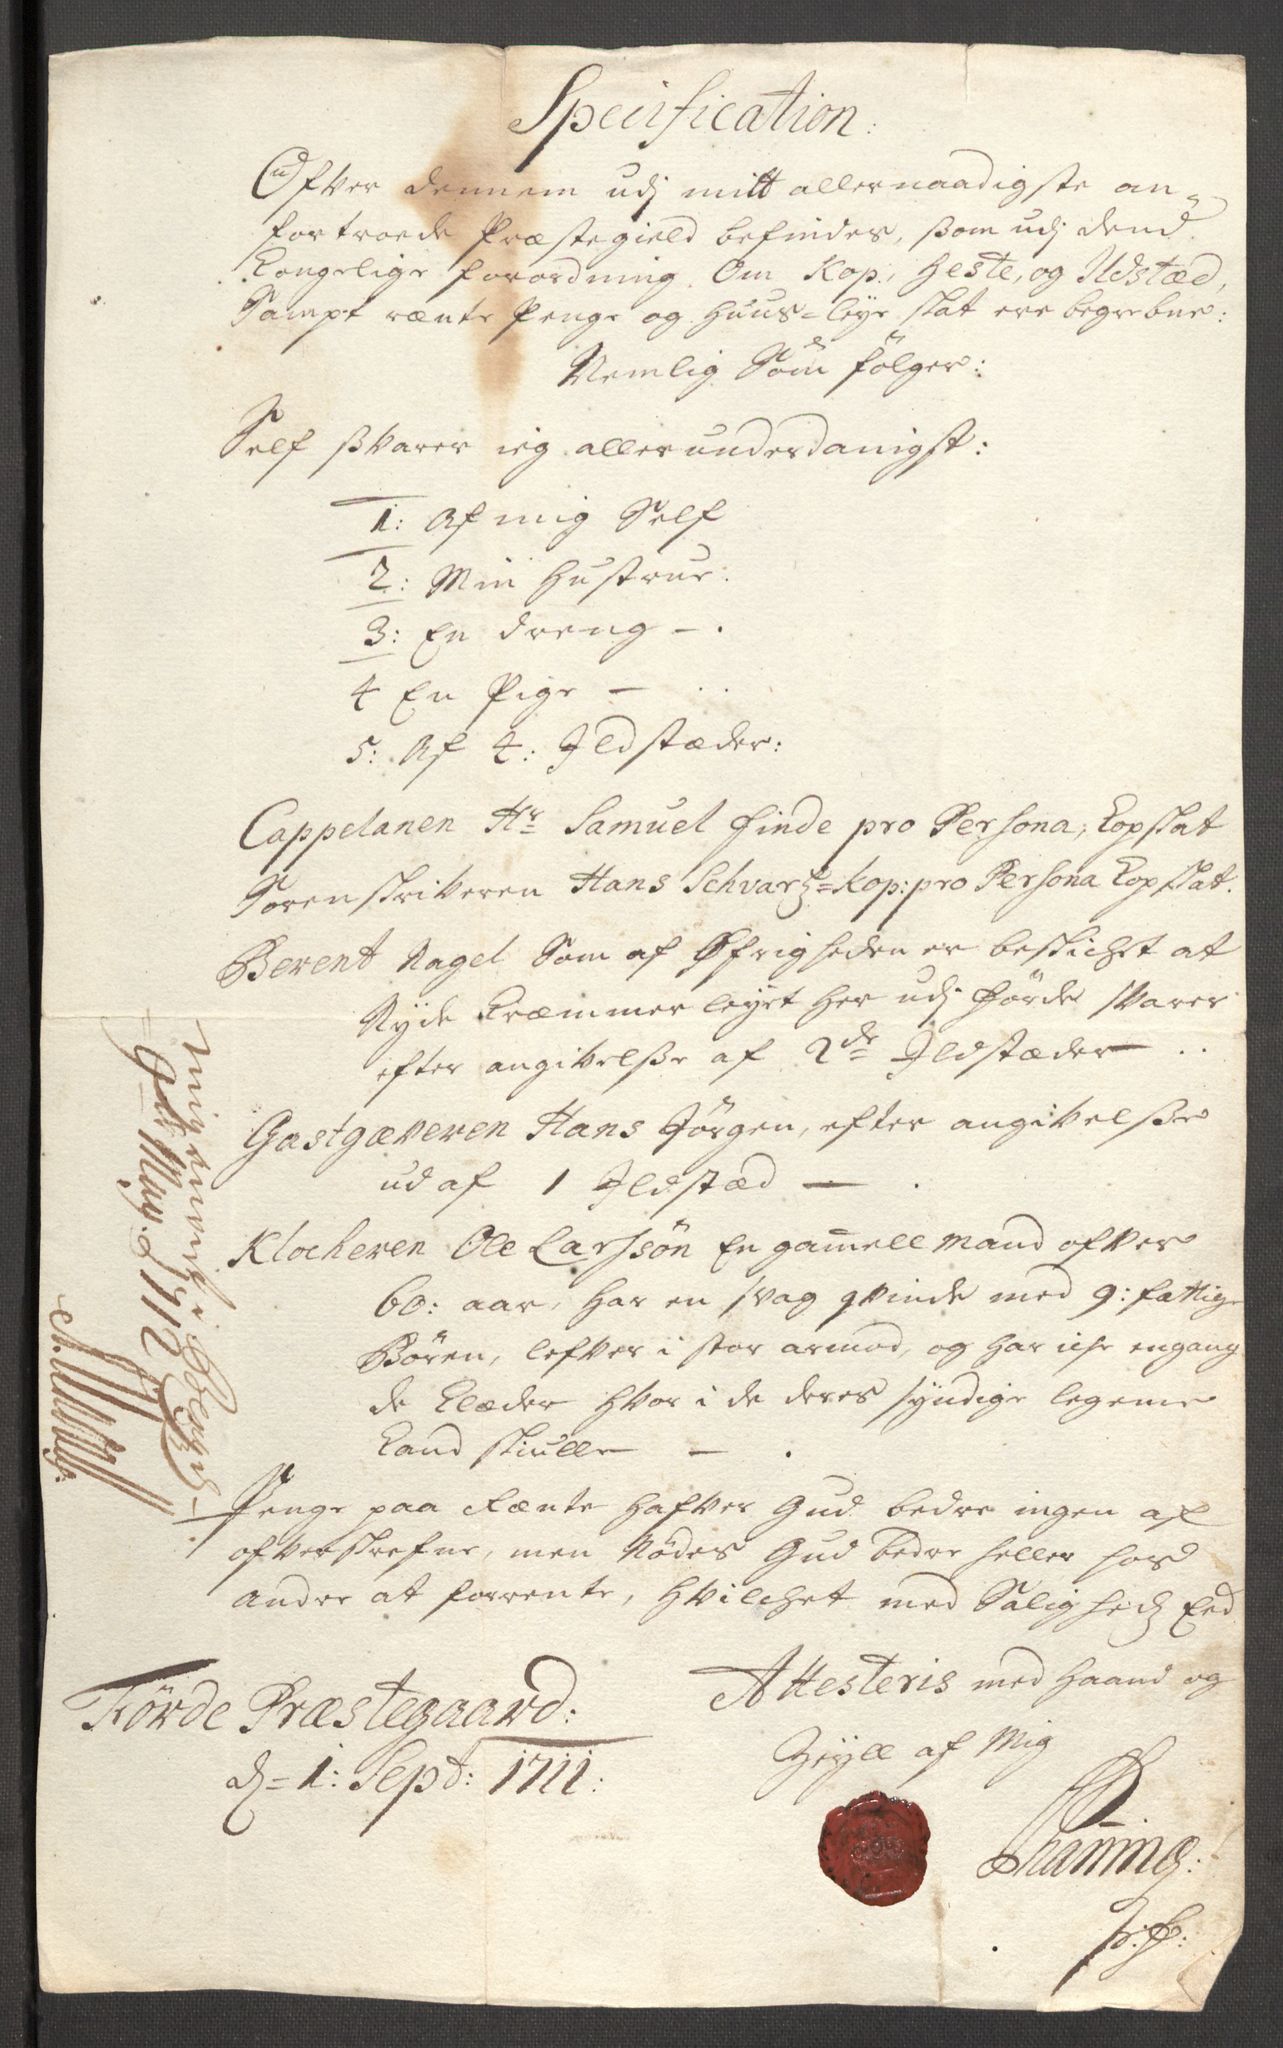 Specification:
Ofver dennem udj mitt allernaadigste an-
fortroede Præstegield befindes, som udj dend
Kongelige forordning Om Kop, Heste, og Ildstæd,
Sampt rænte Penge og Huus-leye skat ere begrebne:
Nemlig Som følger:
Self ßvarer ieg allerunderdanigst:
1: Af mig Self
2: Min Hustrue.
3: En dreng -.
4 En Pige -
5: Af 4: Ildstæder:
Cappelanen Hr Samuel Finde pro Persona, Kopskat
Sorenskriveren Hans Schvartz=Kop: pro Persona Kopskat.
Berent Nagel Som af Øfrigheden er beskichet at
Nyde Kræmmerleyet her udj Førde svarer
efter angivelße af 2de Ildstæder -
Gastgæveren Hans Jørgen, efter angivelße
ud af 1 Ildstæd -
Klocheren Ole Larssøn En gamell Mand ofver
60: aar, har en svag qvinde med 9: fattige
Børen, lefver i stor armod, og har iche engang
de Klæder hvor i de deres syndige legeme
Kand skiulle -
Penge paa Rænte hafver Gud bedre ingen af
ofverskrefne, men Nødes Gud bedre heller hos
andre at forrente, hvilchet med Saligheds Eed
Attesteris med Haand og
Zeyll af Mig
Førde Præstegaard:
d= 1: Sept: 1711:
Thanning:
9de May 1712